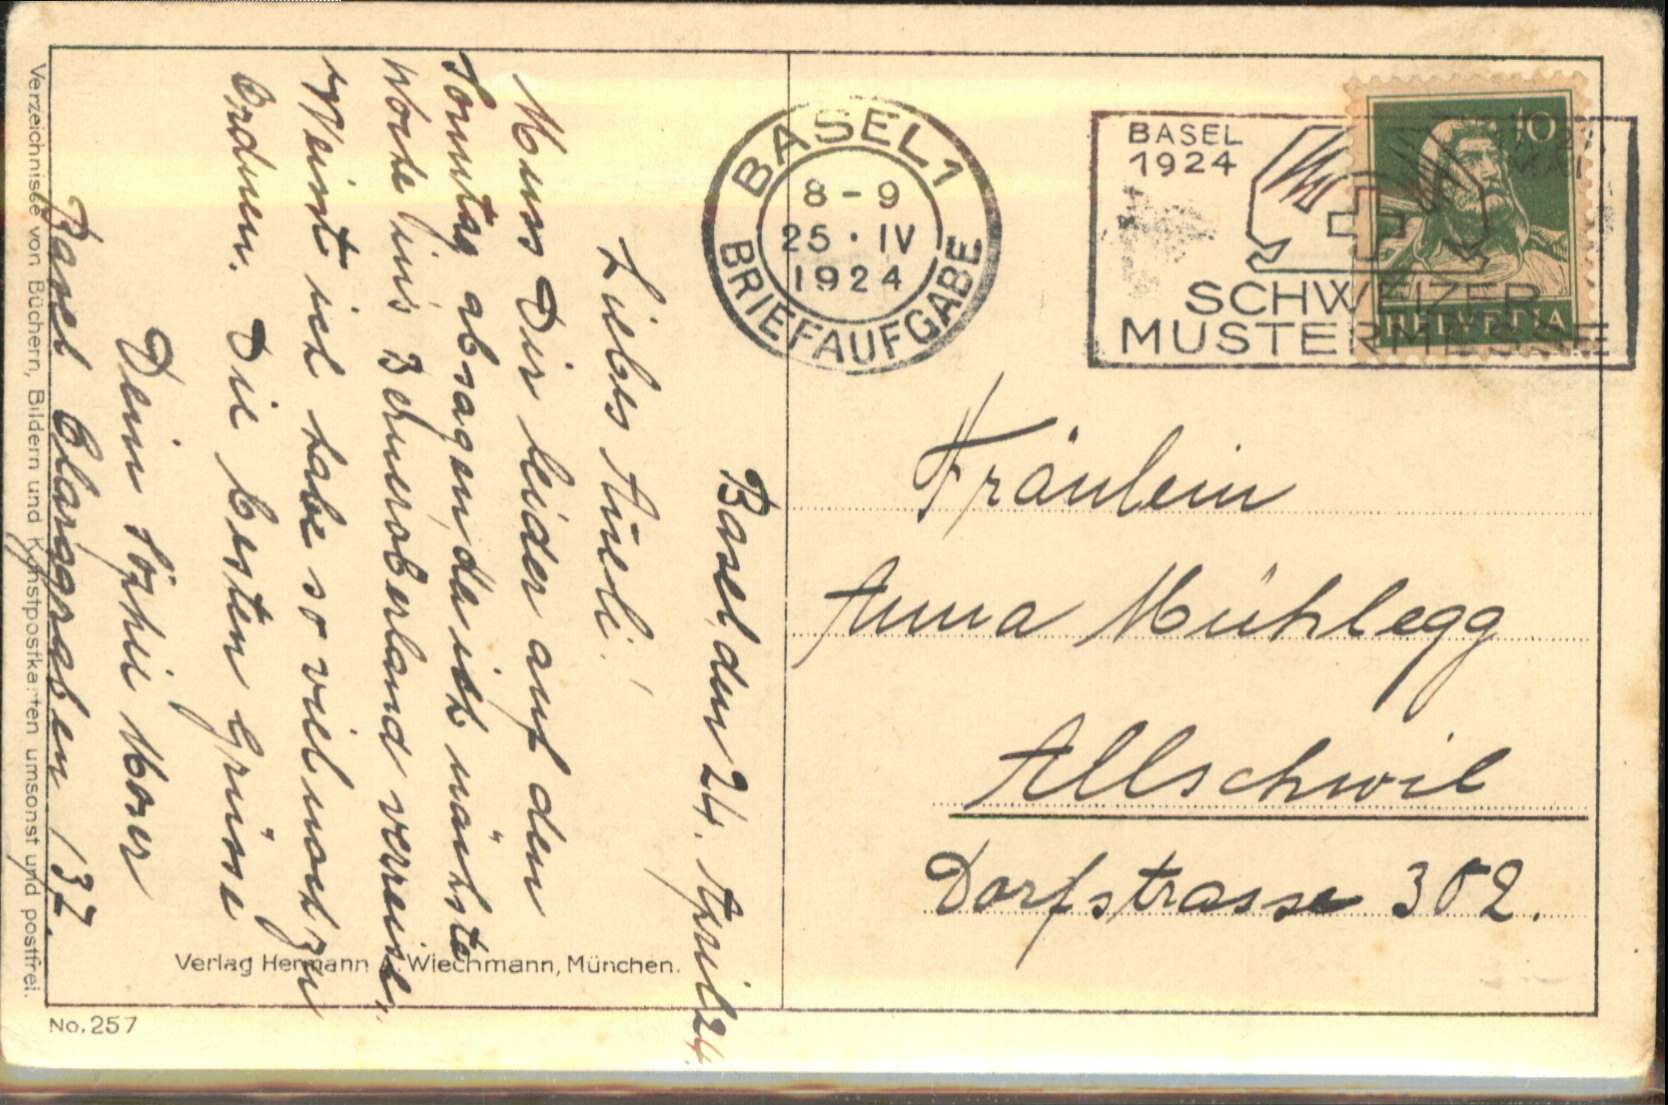 Basel, den 24. April 24.
Liebes Anneli!
Muss Dir leider auf den
Sonntag absagen, da ich nächste
Woche ins Zernroberland verreise,
Meint ich habe so viel noch zu
Ordnen. Die besten Grüsse
Dein Sophie Moser
Basel Claragraben 137.
Verzeichnisse von Büchern, Bildern und Kunstpostkarten umsonst und postfrei.
Verlag Hermann A. Wiechmann, München.
No. 257
BASEL 1
8-9
25·IV
1924
BRIEFAUFGABE
BASEL
1924
MAI
SCHWEIZER
MUSTERMESSE
10
HELVETIA
Fräulein
Anna Mühlegg
Allschwil
Dorfstrasse 302.